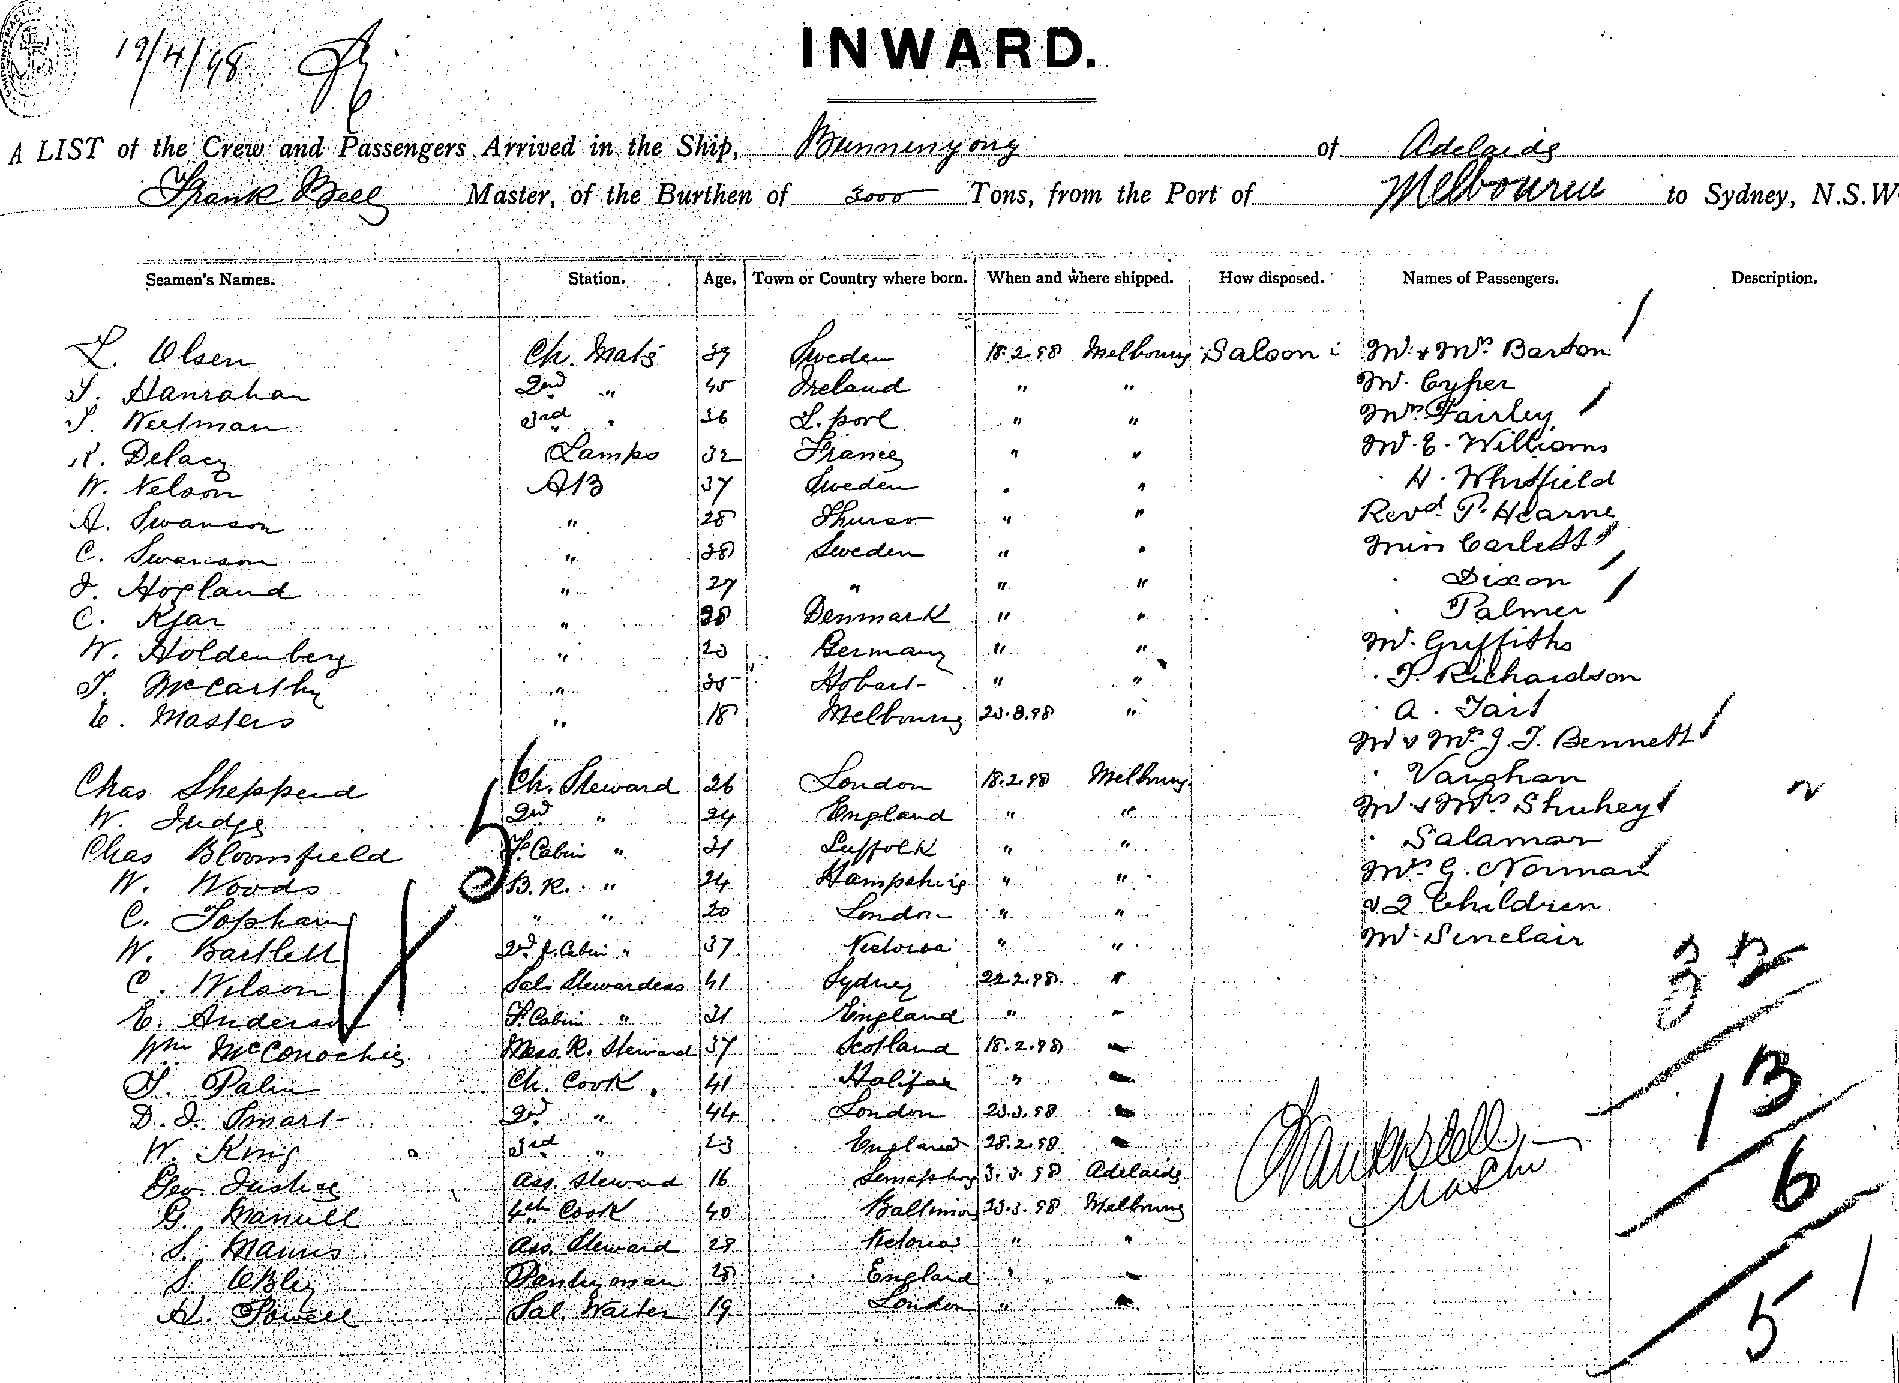 12/4/98
INWARD.
A LIST of the Crew and Passengers Arrived in the Ship, Bunninyong of Adelaide
Frank Bell Master, of the Burthen of 3000 Tons, from the Port of Melbourne to Sydney, N.S.W
Seamen's Names. Station. Age. Town or Country where born. When and where shipped. How disposed. Names of Passengers. Description.
L. Olsen Ch. Mate 39 Sweden 18.2.98 Melbourne Saloon : Mr & Mrs Barton
T. Hanrahan 2nd " 45 Ireland " " Mr. Cypher
3rd " 36 L. pool " " Mrs Fairley
Delacy Lamps 32 France " " Mr. E. Williams
W. Nelson AB 37 Sweden " " " H. Whitfield
A. Swanson " 28 Thurso " " Revd. P. Hearne
C. Swanson " 38 Sweden " " Miss Carlett
Hogland " 27 " " " " Dixon
C. Kjar " 28 Denmark " " " Palmer
W. Holdenberg " 23 Germany " " Mr. Griffiths
T. McCarthy " Hobart " " " Richardson
E. Masters " 18 Melbourne 23.3.98 " " A. Tait
Mr & Mrs J. T. Bennett
Chas Shepperd Ch. Steward 26 London 18.2.98 Melbourne " Vaughan
W. Judge 2nd " 24 England " " Mr & Mrs Shuhey
Chas Bloomfield F. Cabin " 31 Suffolk " " " Salamar
W. Woods B.R. " 24 Hampshire " " Mrs G. Norman
C. Topham " " 20 London " " & 2 Children
W. Bartlett 2nd F. Cabin " 37 Victoria " " Mr Sinclair
C. Wilson Sal. Stewardess 41 Sydney 22.2.98 "
E. Anderson F. Cabin " 31 England " "
Wm McConochie Mess R. Steward 37 Scotland 18.2.98 "
T. Palin Ch. Cook 41 Halifax " "
D. J. Smart 2nd " 44 London 23.3.98 "
W. King 3rd " 23 England 28.2.98 "
Geo. Justice Ass. Steward 16 Semaphore 3.3.98 Adelaide
G. Manuell 4th Cook 40 Baltimore 23.3.98 Melbourne
S. Mannis Ass. Steward 28 Victoria " "
Pantryman England " "
H. Powell Sal. Waiter 19 London " "
Frank Bell
Master
32
13
6
51